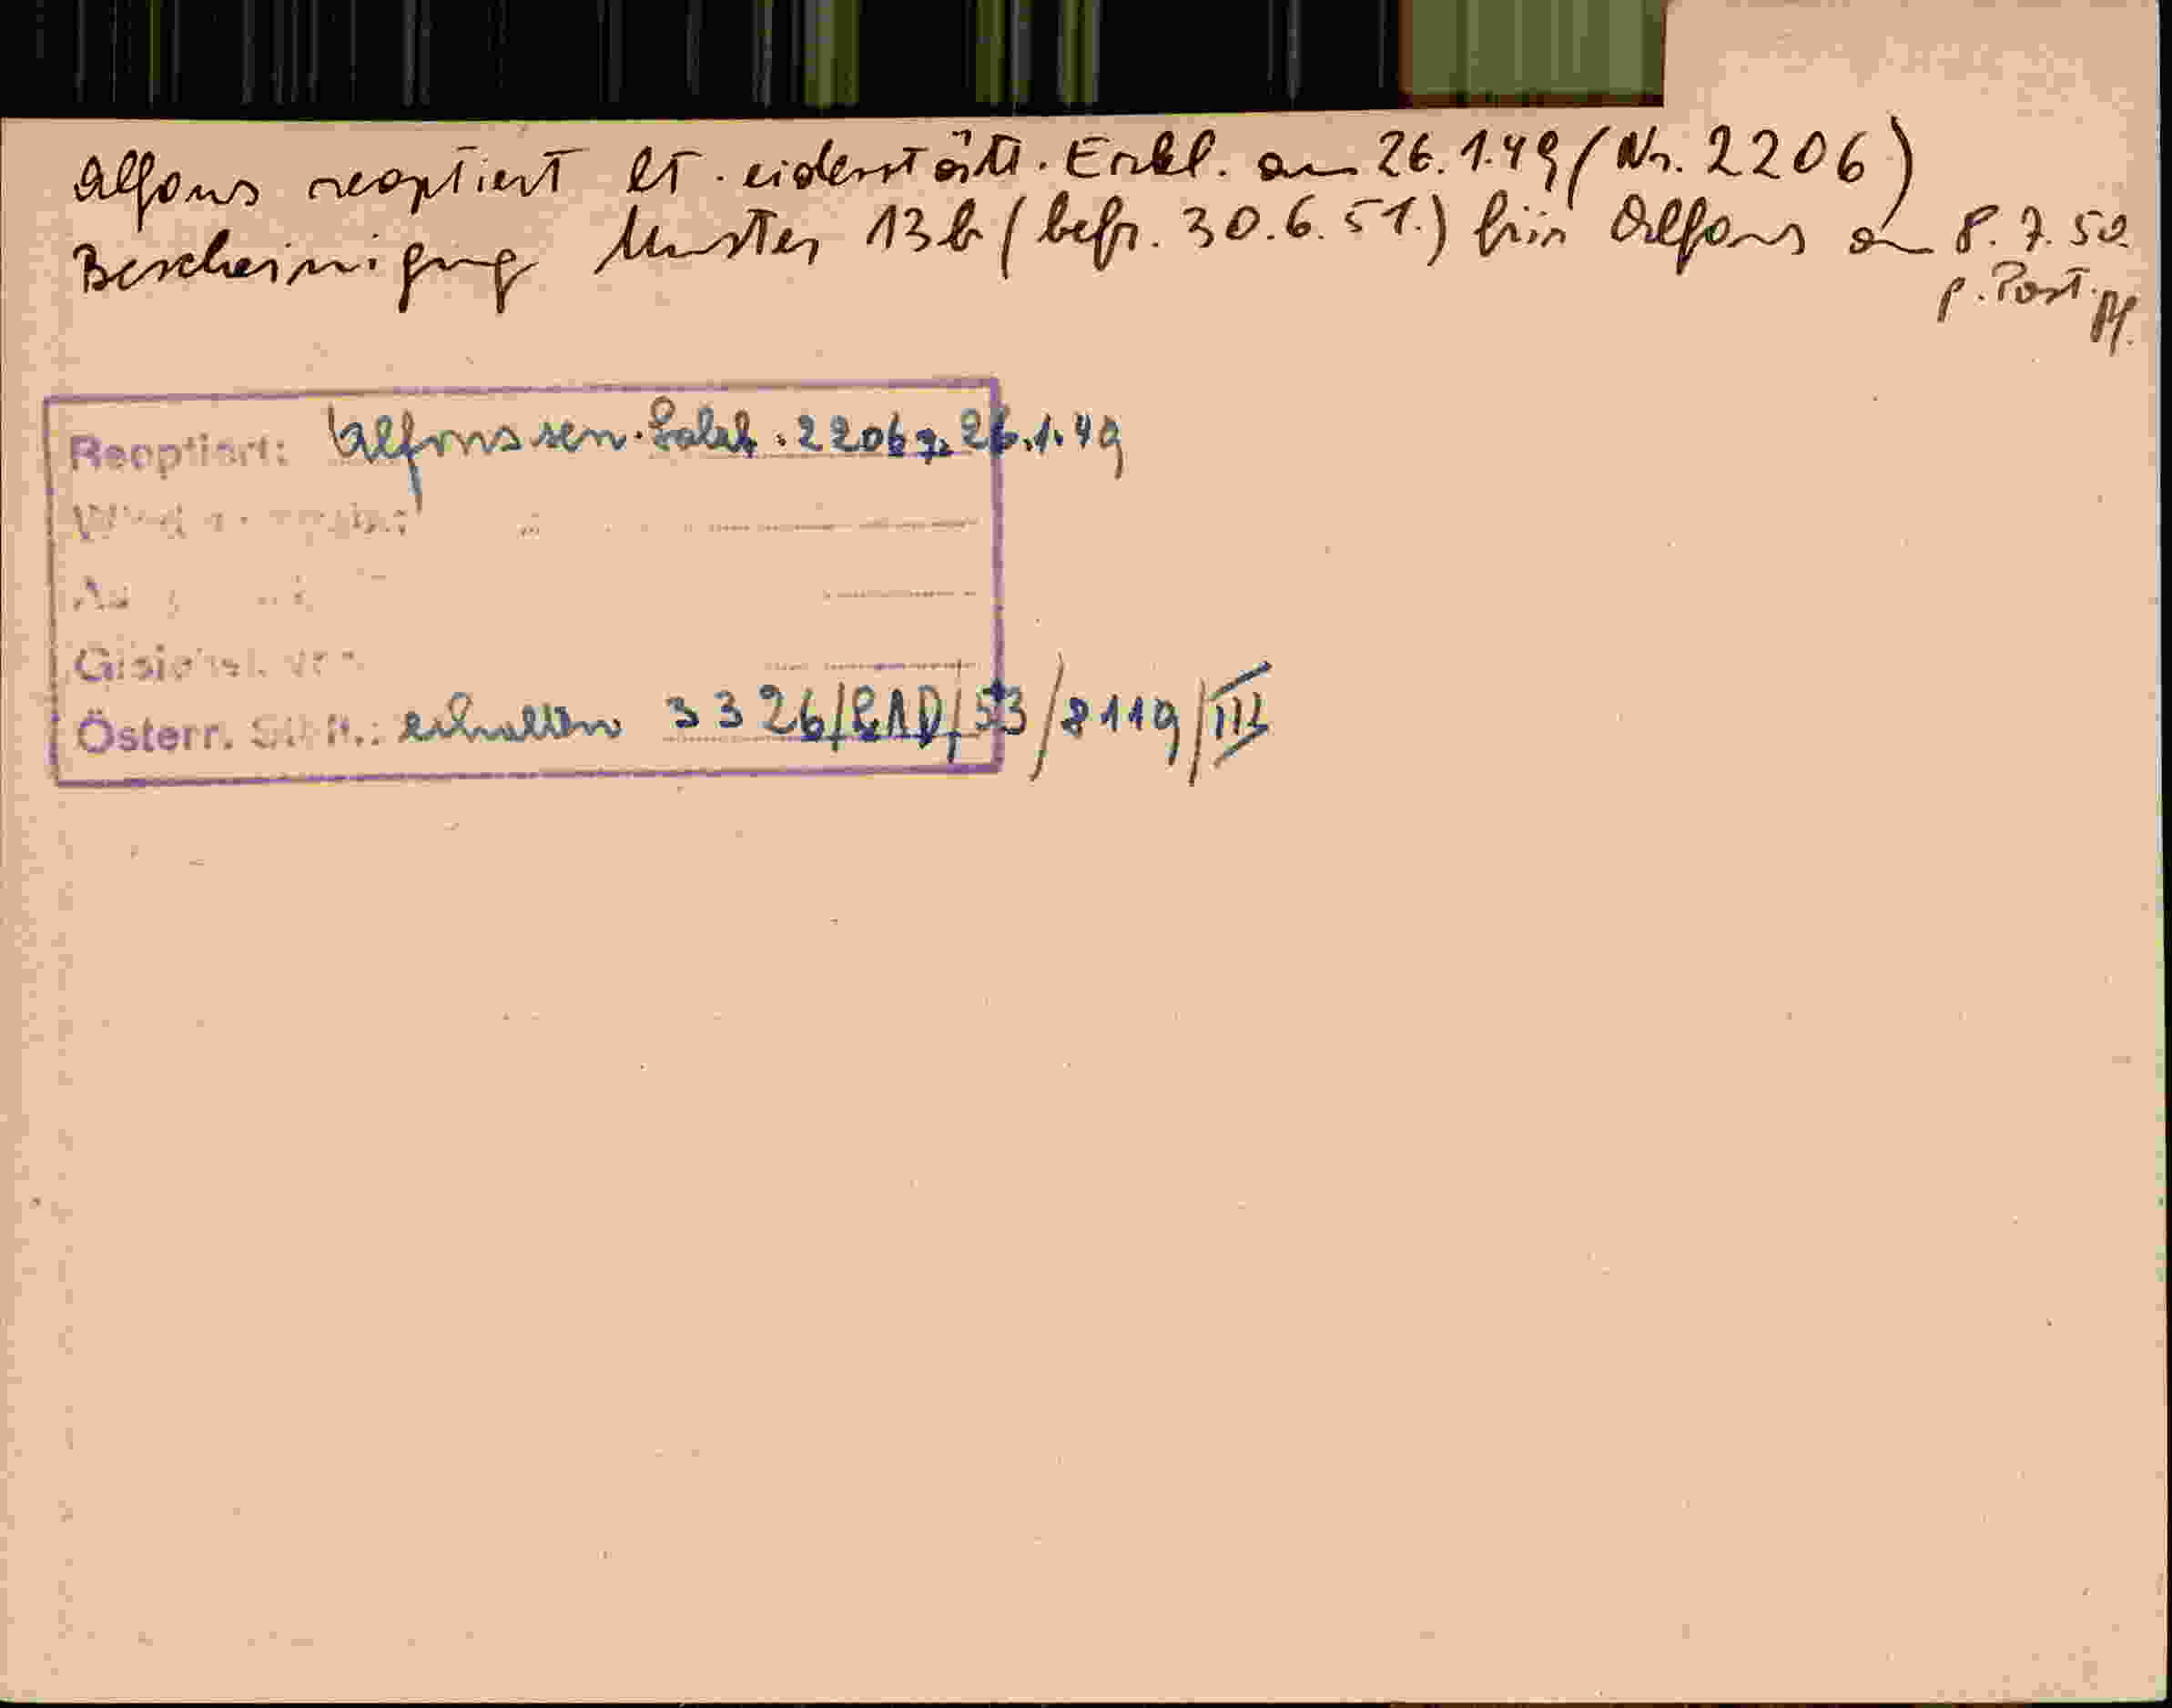 Alfons reoptiert lt. eidesstättl. Erkl. am 26.1.49 (Nr. 2206)
Bescheinigung Muster 13b (befr. 30.6.51.) für Alfons am 8.7.50.
p. Post.
Reoptiert: Alfons sen. 2206 26.1.49
Österr. erhalten 3326/LAD/53/8119/III